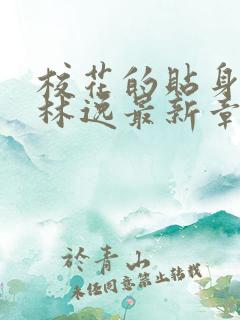 校花的贴身
林逸最新章
於青山
未经同意禁止转载